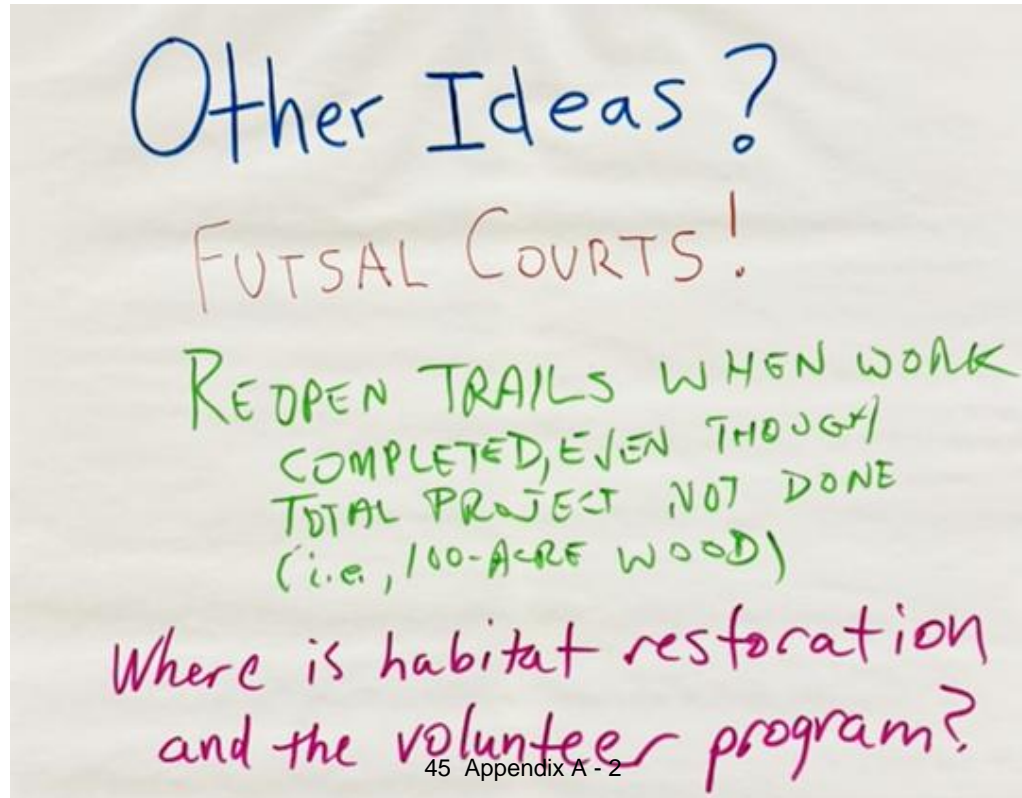 Other Ideas?
FUTSAL COURTS!
REOPEN TRAILS WHEN WORK
COMPLETED, EVEN THOUGH
TOTAL PROJECT NOT DONE
(i.e., 100-ACRE WOOD)
Where is habitat restoration
and the volunteer program?
45 Appendix A - 2